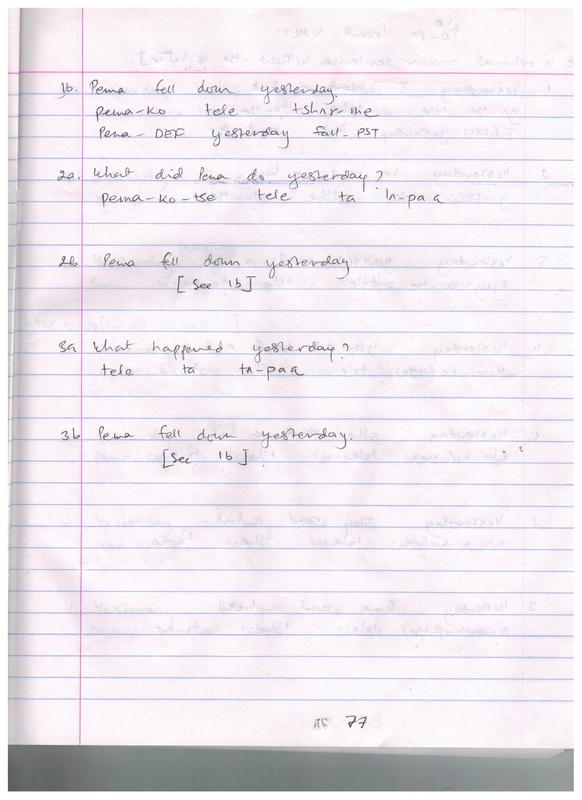 1b. Pema fell down yesterday.
pema-ko tele
Pema-DEF yesterday fall-PST
2a. What did Pema do yesterday?
pema-ko-tse tele ta
2b Pema fell down yesterday
[See 1b]
3a What happened yesterday?
tele ta tn-paa
3b Pema fell down yesterday.
[See 1b]
77